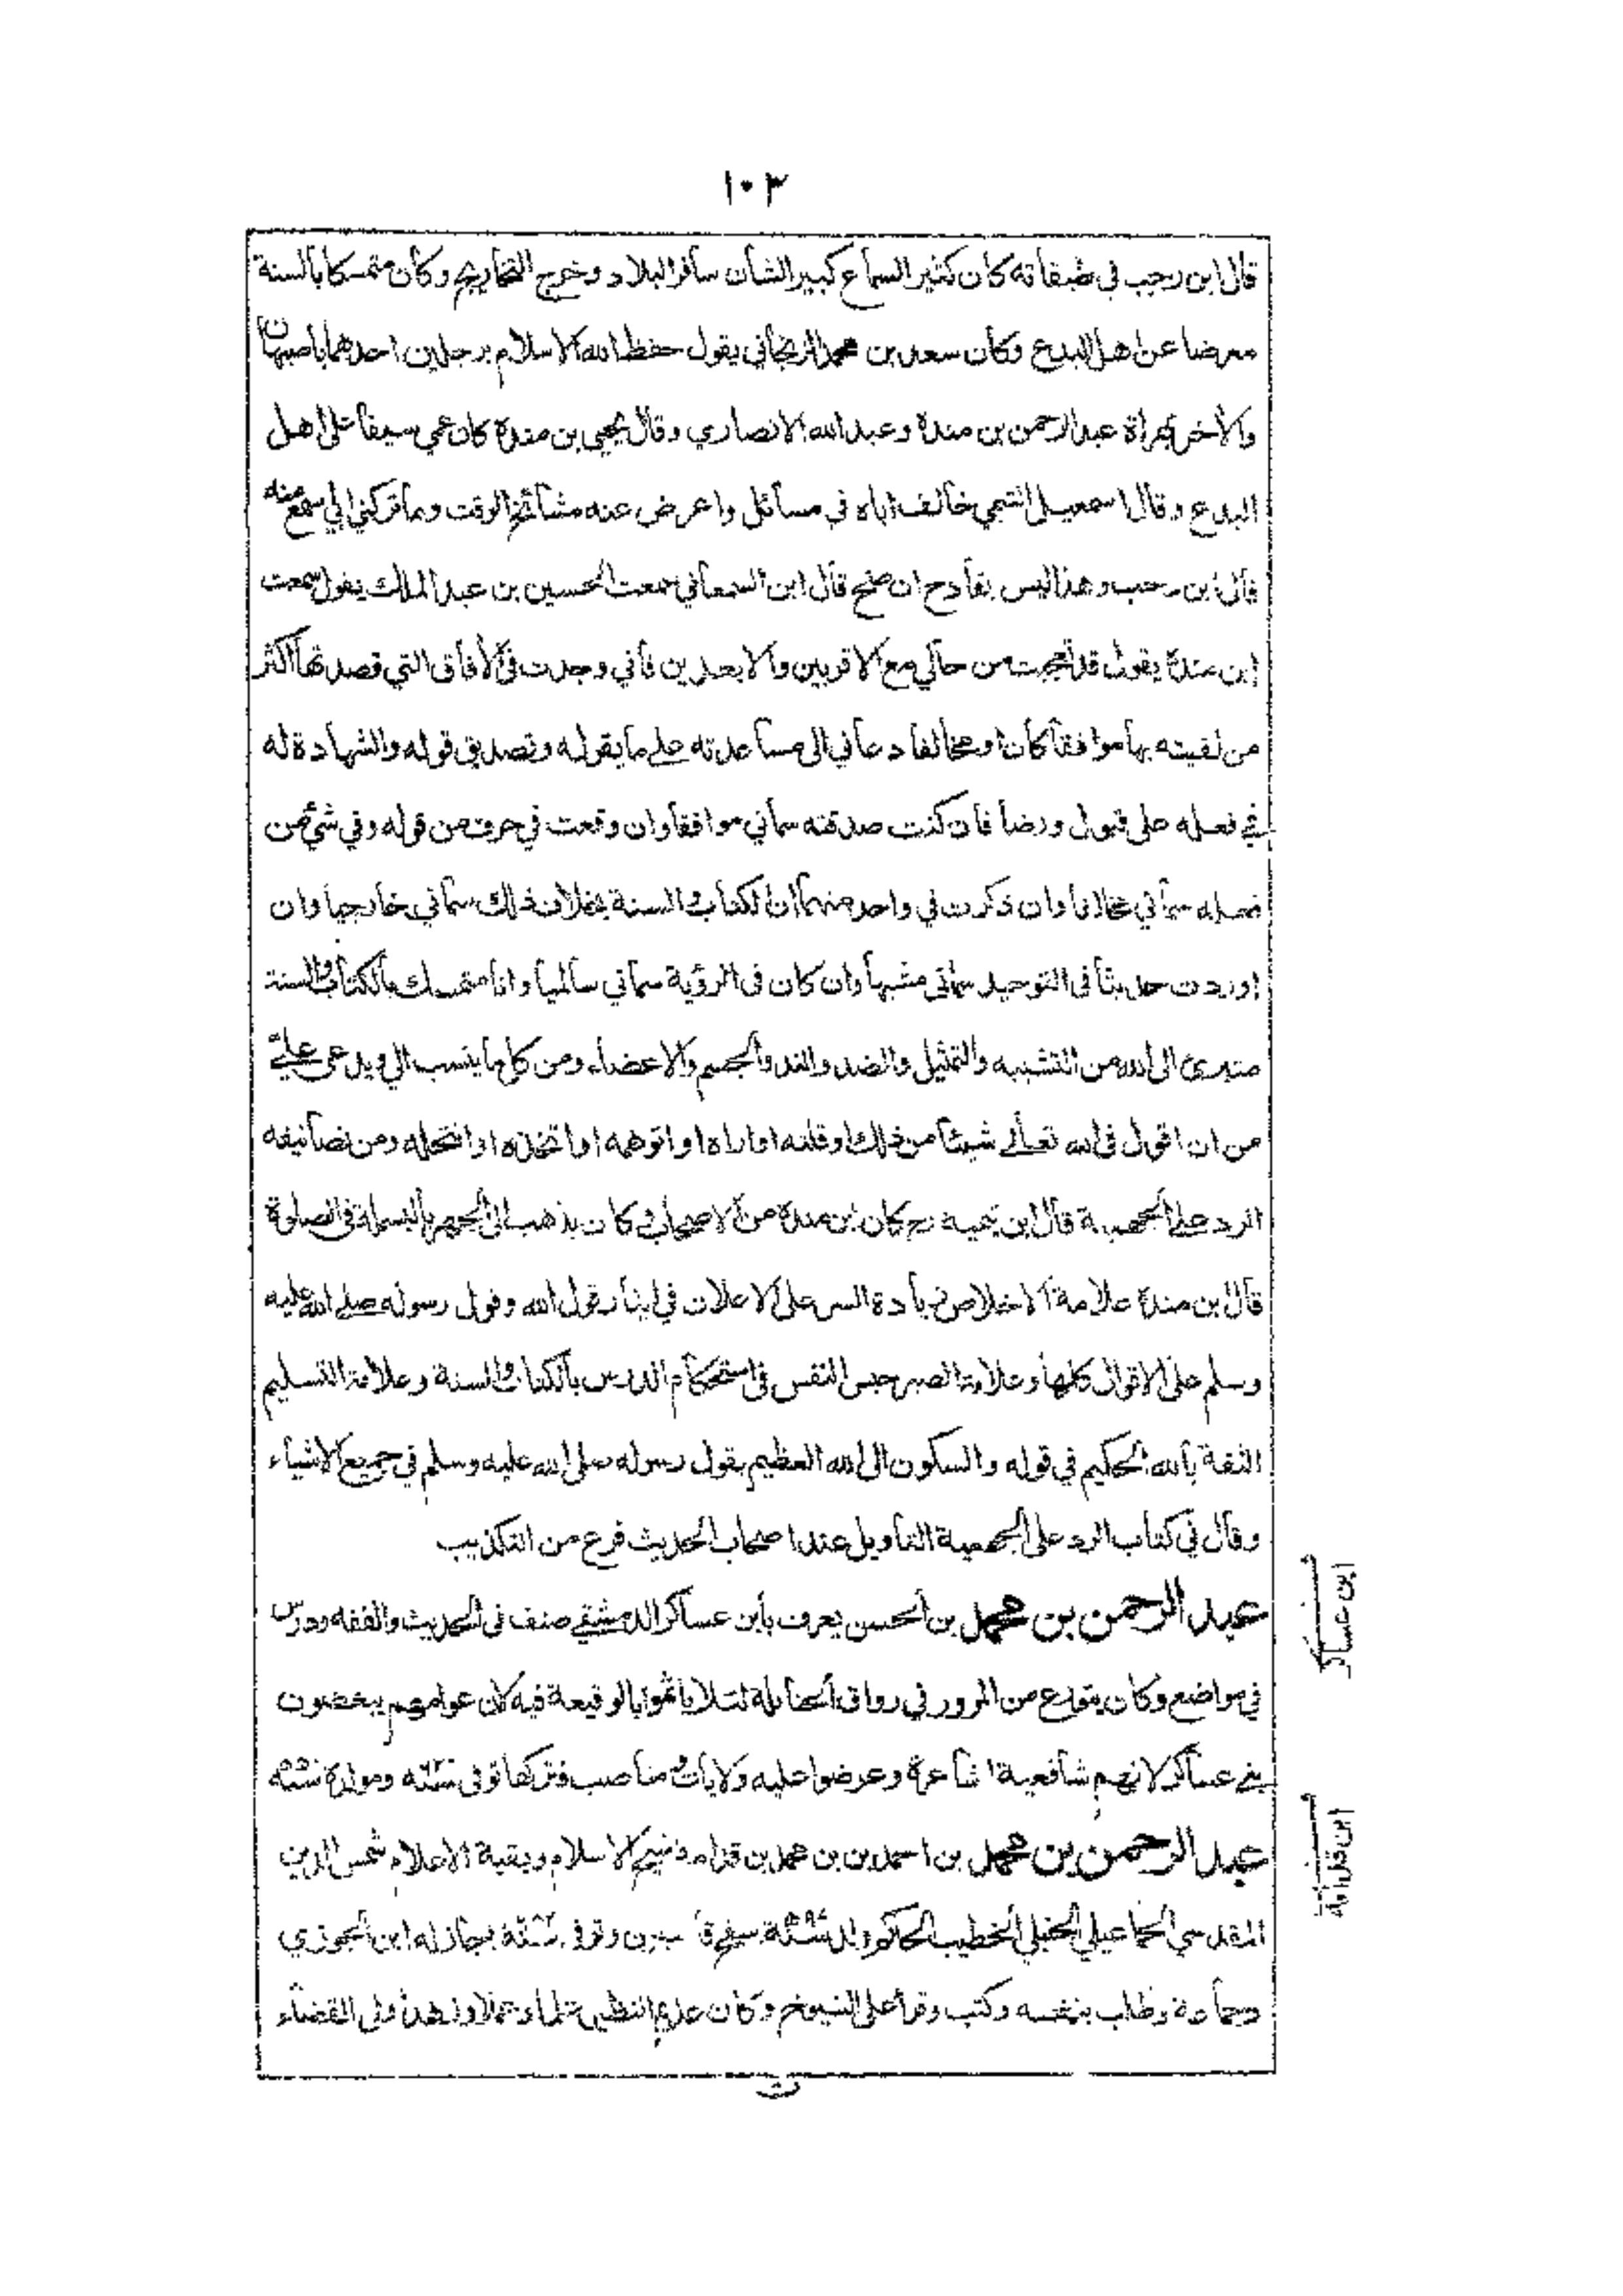 ١٠٣
قال ابن رجب في طبقاته كان كثير السماع كبير الشأن سافر البلاد وخرج التخاريج وكان متمسكا بالسنة
معرضا عن اهل البدع وكان سعد بن محمد الزنجاني يقول حفظ الله الاسلام برجلين احدهما باصبهان
والأخر بهراة عبد الرحمن بن مندة وعبد الله الانصاري وقال يحيى بن مندة كان عمي سيفا على اهل
البدع وقال اسمعيل التيمي خالف اباه في مسائل واعرض عنه مشائخ الوقت وما تركني ابي سمع منه
قال ابن رجب وهذا ليس بقادح ان صح قال ابن السمعاني سمعت الحسين بن عبد الملك يقول سمعت
ابن مندة يقول قد عجبت من حالي مع الاقربين والابعدين فاني وجدت في الأفاق التي قصدتها اكثر
من لقيته بها موافقا كان او مخالفا دعاني الى مساعدته على ما يقوله وتصديق قوله والشهادة له
في فعله على قبول ورضا فان كنت صدقته سماني موافقا وان وقعت في حرف من قوله وفي شيء من
فعله سماني مخالفا وان ذكرت في واحد منهما ان الكتاب والسنة بخلاف ذلك سماني خارجيا وان
اوردت حديثا في التوحيد سماني مشبها وان كان في الرؤية سماني سالميا وانا متمسك بالكتاب والسنة
متبرئ الى الله من التشبيه والتمثيل والضد والند والجسم والاعضاء ومن كل ما ينسب الي ويدعى علي
من ان اقول في الله تعالى شيئا من ذلك او قلته او اراه او اتوهمه او اتخذه او انتحله ومن تصانيفه
الرد على الجهمية قال ابن تيمية رح كان ابن مندة من الاصحاب كان يذهب الى الجهر بالبسملة في الصلوة
قال ابن مندة علامة الاخلاص زيادة السر على الاعلان في ايثار قول الله وقول رسوله صلى الله عليه
وسلم على الاقوال كلها وعلامة الصبر حبس النفس في استحكام الدرس بالكتاب والسنة وعلامة التسليم
الثقة بالله الحكيم في قوله والسكون الى الله العظيم بقول رسوله صلى الله عليه وسلم في جميع الاشياء
وقال في كتاب الرد على الجهمية التأويل عند اصحاب الحديث فرع من التكذيب
عبد الرحمن بن محمد بن الحسن يعرف بابن عساكر الدمشقي صنف في الحديث والفقه ودرس
في مواضع وكان يتورع من المرور في رواق الحنابلة لئلا ياثموا بالوقيعة فيه لان عوامهم يبغضون
بني عساكر لانهم شافعية اشاعرة وعرضوا عليه ولايات ومناصب فتركها توفي ومولده
عبد الرحمن بن محمد بن احمد بن بن محمد بن قدامة شيخ الاسلام وبقية الاعلام شمس الدين
المقدسي الجماعيلي الحنبلي الخطيب الحاكم ولد بسفح قاسيون وتوفي اجاز له ابن الجوزي
وجماعة وطلب بنفسه وكتب وقرأ على الشيوخ وكان عديم النظير علما وعملا وزهدا ولي القضاء
ابن عساكر
ابن قدامة